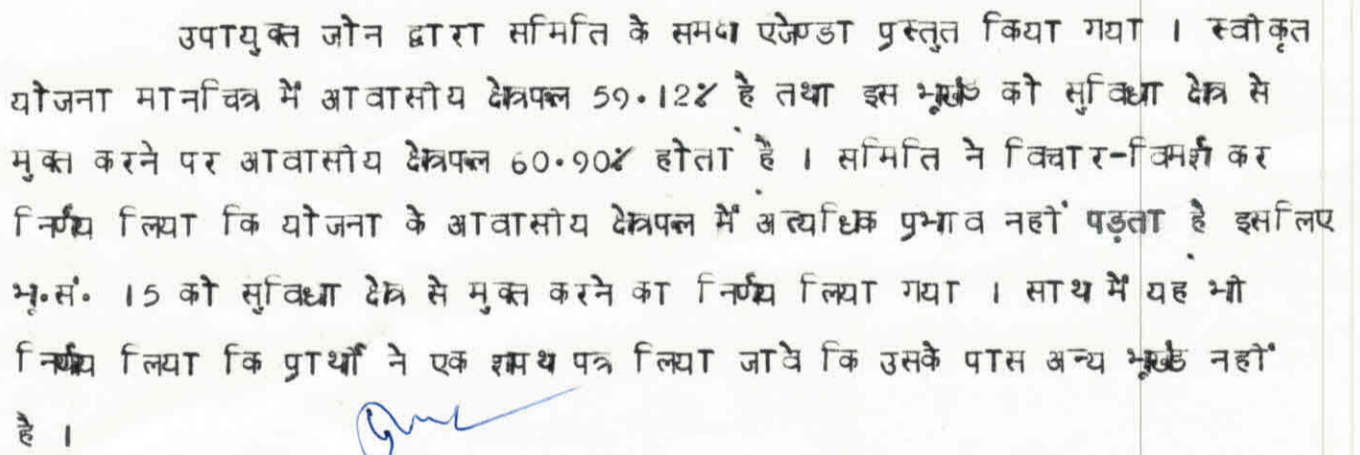 उपायुक्त जोन द्वारा समिति के समक्ष एजेण्डा प्रस्तुत किया गया । स्वीकृत
योजना मानचित्र में आवासीय क्षेत्रफल 59.12% है तथा इस भूखंड को सुविधा क्षेत्र से
मुक्त करने पर आवासीय क्षेत्रफल 60.90% होता है । समिति ने विचार-विमर्श कर
निर्णय लिया कि योजना के आवासीय क्षेत्रफल में अत्यधिक प्रभाव नहीं पड़ता है इसलिए
भू.सं. 15 को सुविधा क्षेत्र से मुक्त करने का निर्णय लिया गया । साथ में यह भी
निर्णय लिया कि प्रार्थी ने एक शपथ पत्र लिया जावे कि उसके पास अन्य भूखंड नहीं
है ।